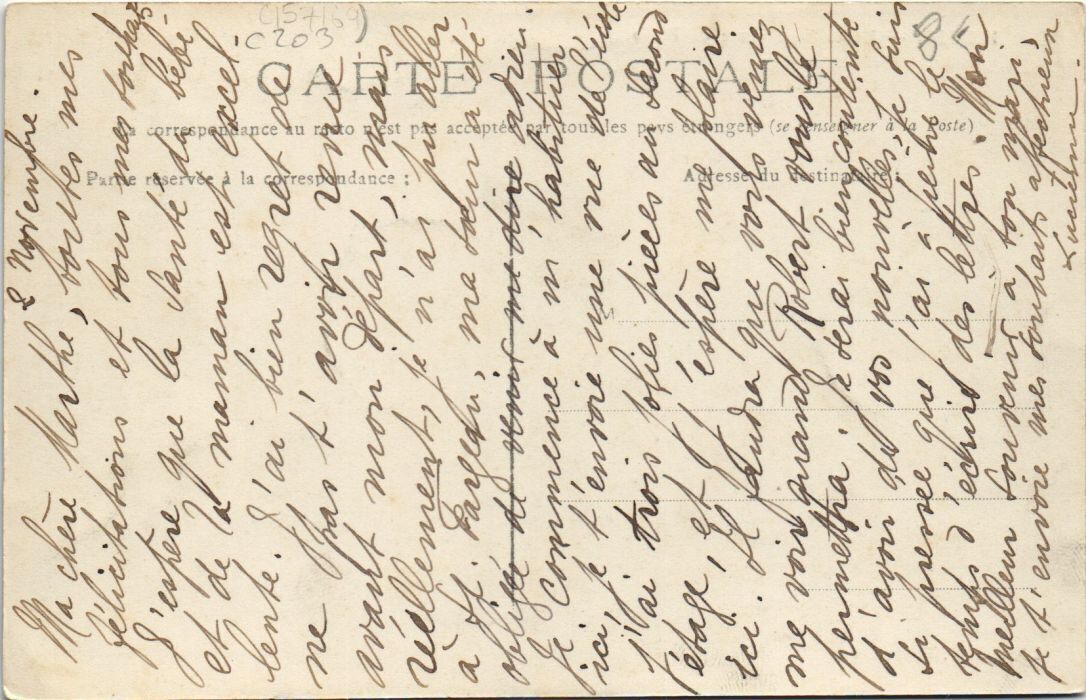 C157169)
C203
8
CARTE POSTALE
La correspondance au recto n'est pas acceptée par tous les pays étrangers (se renseigner à la Poste)
Partie réservée à la correspondance :
Adresse du destinataire :
M
8 Novembre.
Ma chère Marthe, toutes mes
félicitations et tous mes souhaits
J'espère que la santé du bébé
et de la maman est excel-
lente. J'ai bien regretté de
ne pas t'avoir revue
avant mon départ, mais
réellement, je n'ai pu aller
à St. Fargeau, ma sœur a été
obligée de venir me dire adieu
Je commence à m'habituer
ici, je t'envoie une vue de
J'ai trois jolies pièces au second
étage, et j'espère me plaire
ici. Il faudra que vous veniez
me voir quand Robert vous le
permettra. Je serai bien contente
d'avoir de vos nouvelles, je suis
si pressée que j'ai à peine le
temps d'écrire des lettres. Mon
meilleur souvenir à ton mari,
je t'envoie mes souhaits affectueux
Lucienne.